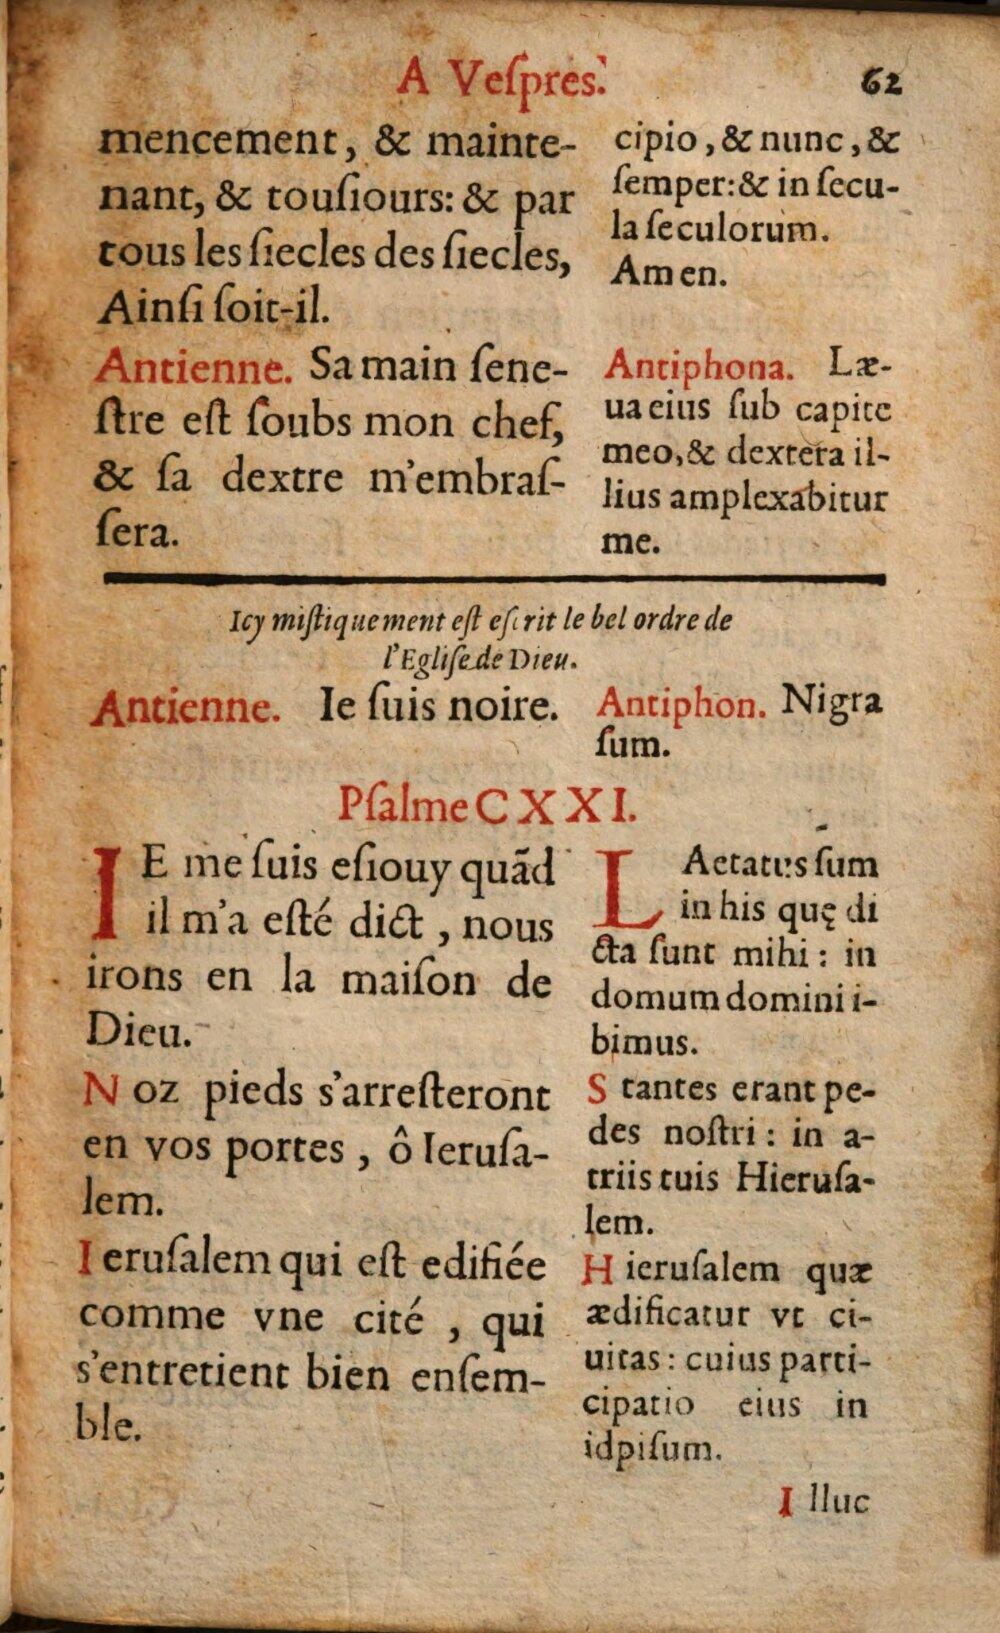 A Veſpres.
62
mencement, & mainte-
nant, & touſiours: & par
tous les ſiecles des ſiecles,
Ainſi ſoit-il.
Antienne. Sa main ſene-
ſtre eſt ſoubs mon chef,
& ſa dextre m'embraſ-
ſera.
cipio, & nunc, &
ſemper: & in ſecu-
la ſeculorum.
Amen.
Antiphona. Læ-
ua eius ſub capite
meo, & dextera il-
lius amplexabitur
me.
Icy miſtiquement eſt eſcrit le bel ordre de
l'Egliſe de Dieu.
Antienne. Ie ſuis noire.
Antiphon. Nigra
ſum.
Pſalme CXXI.
IE me ſuis eſiouy quãd
il m'a eſté dict, nous
irons en la maiſon de
Dieu.
Noz pieds s'arreſteront
en vos portes, ô Ieruſa-
lem.
Ieruſalem qui eſt edifiée
comme vne cité, qui
s'entretient bien enſem-
ble.
LAetatus ſum
in his quę di
cta ſunt mihi: in
domum domini i-
bimus.
Stantes erant pe-
des noſtri: in a-
triis tuis Hieruſa-
lem.
Hieruſalem quæ
ædificatur vt ci-
uitas: cuius parti-
cipatio eius in
idpiſum.
Illuc